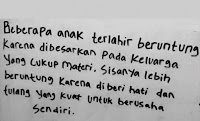 Beberapa anak terlahir beruntung
karena dibesarkan pada keluarga
yang cukup materi. Sisanya lebih
beruntung karena diberi hati dan
tulang yang kuat untuk berusaha
sendiri.